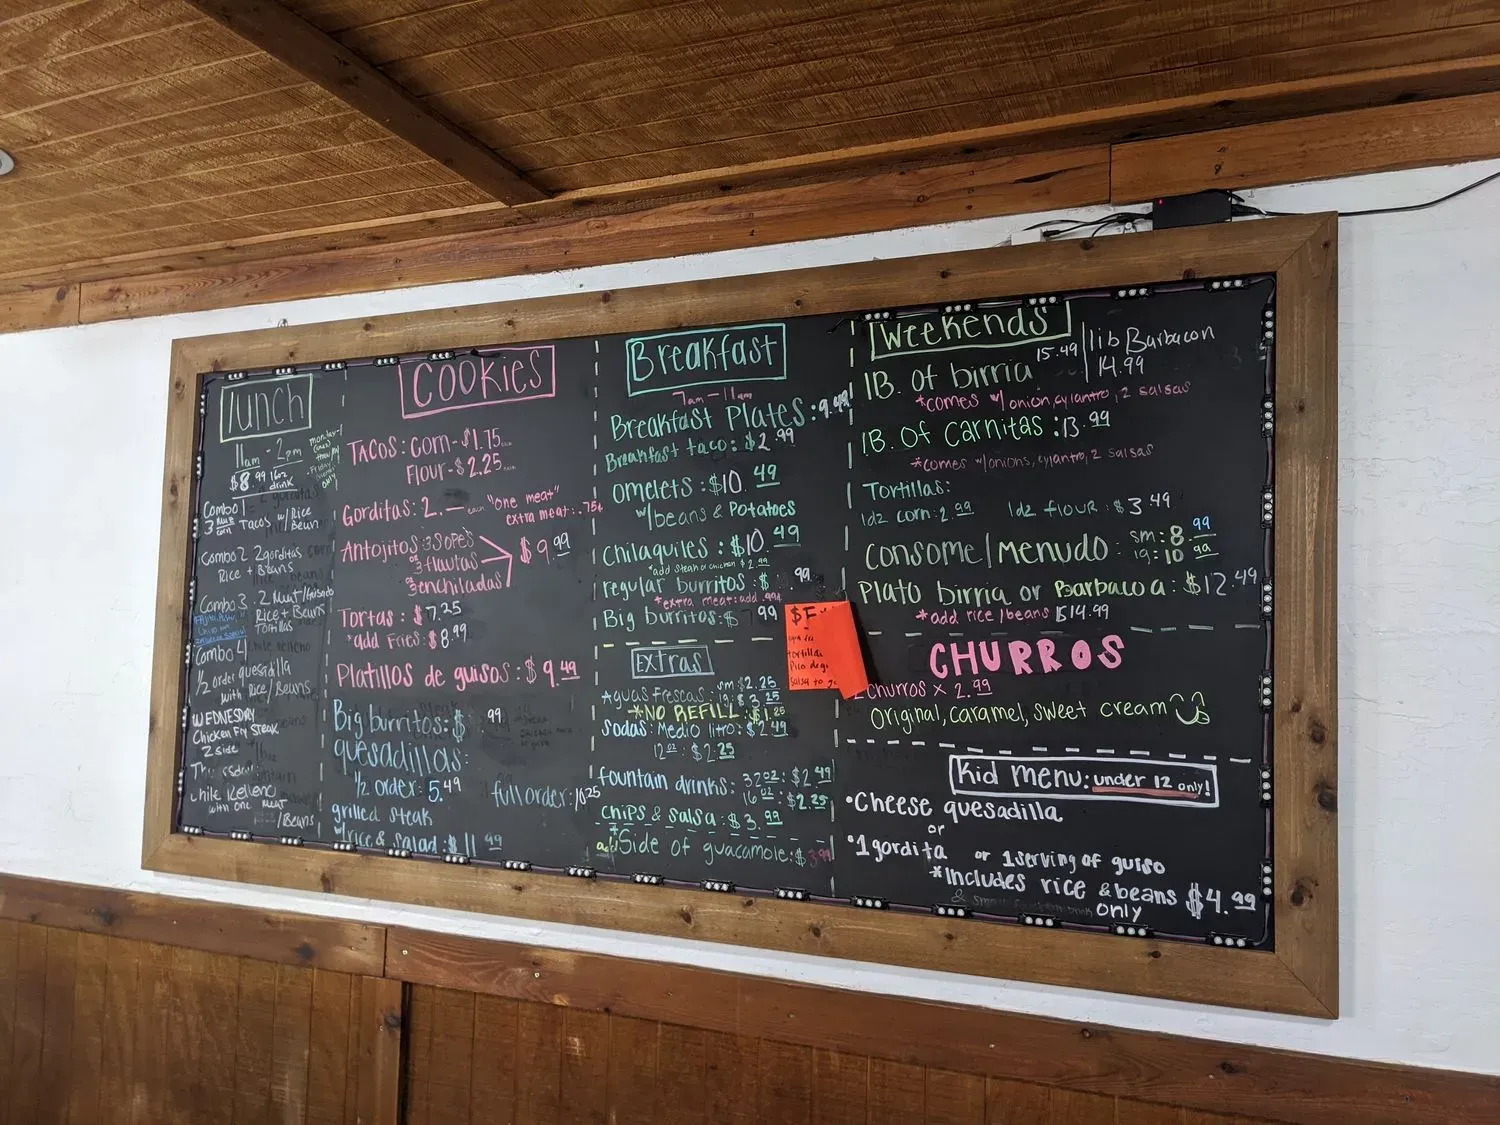 lunch
11am - 2pm
$8.99 16oz drink
Combo 1
3 Tacos w/Rice
corn Beans
Combo 2 2gorditas
Rice + Beans
Combo 3 . 2 Meat/Guisado
Rice + Beans
Tortillas
Combo 4
1/2 order quesadilla
with Rice/Beans
WEDNESDAY
Chicken Fry Steak
2 side
with one meat
/Beans
COOKIES
Tacos: corn-$1.75
Flour-$2.25
Gorditas: 2.— each "one meat"
extra meat: .75¢
Antojitos: 3 sopes
or 3 flautas $9.99
or 3 enchiladas
Tortas: $7.25
*add Fries: $8.99
Platillos de guisos: $9.49
Big burritos: $ .99
quesadillas:
1/2 order: 5.49 full order: 10.25
grilled steak
w/rice & salad: $11.99
Breakfast
7am-11am
Breakfast Plates: 9.49
Breakfast taco: $2.99
omelets: $10.49
w/beans & Potatoes
Chilaquiles: $10.49
*add steak or chicken $2.99
regular burritos: $ .99
*extra meat: add .99¢
Big burritos: $7.99
tortillas
Pico de g
salsa to g
Extras
Aguas Frescas: sm $2.25
lg: $3.25
*NO REFILL: $1.25
sodas: Medio litro: $2.49
12oz: $2.25
fountain drinks: 32oz: $2.49
16oz: $2.25
chips & salsa: $3.99
add Side of guacamole: $3.99
Weekends
1B. of birria 15.49 1lb Barbacon 14.99
*comes w/onion, cylantro, 2 salsas
1B. of Carnitas: 13.99
*comes w/onions, cylantro, 2 salsas
Tortillas:
1dz corn: 2.99 1dz flour: $3.49
consome/Menudo: sm: 8.99
lg: 10.99
Plato birria or Barbacoa: $12.49
*add rice/beans $14.99
CHURROS
2 churros x 2.99
Original, caramel, sweet cream
Kid menu: under 12 only!
•Cheese quesadilla
or
•1 gordita or 1 serving of guiso
*Includes rice & beans $4.99
only